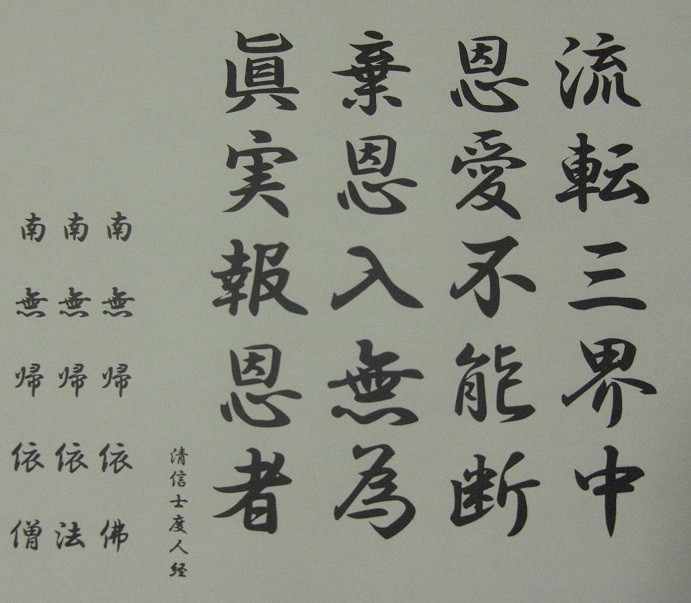 流転三界中
恩愛不能断
棄恩入無為
眞実報恩者
清信士度人経
南無帰依佛
南無帰依法
南無帰依僧